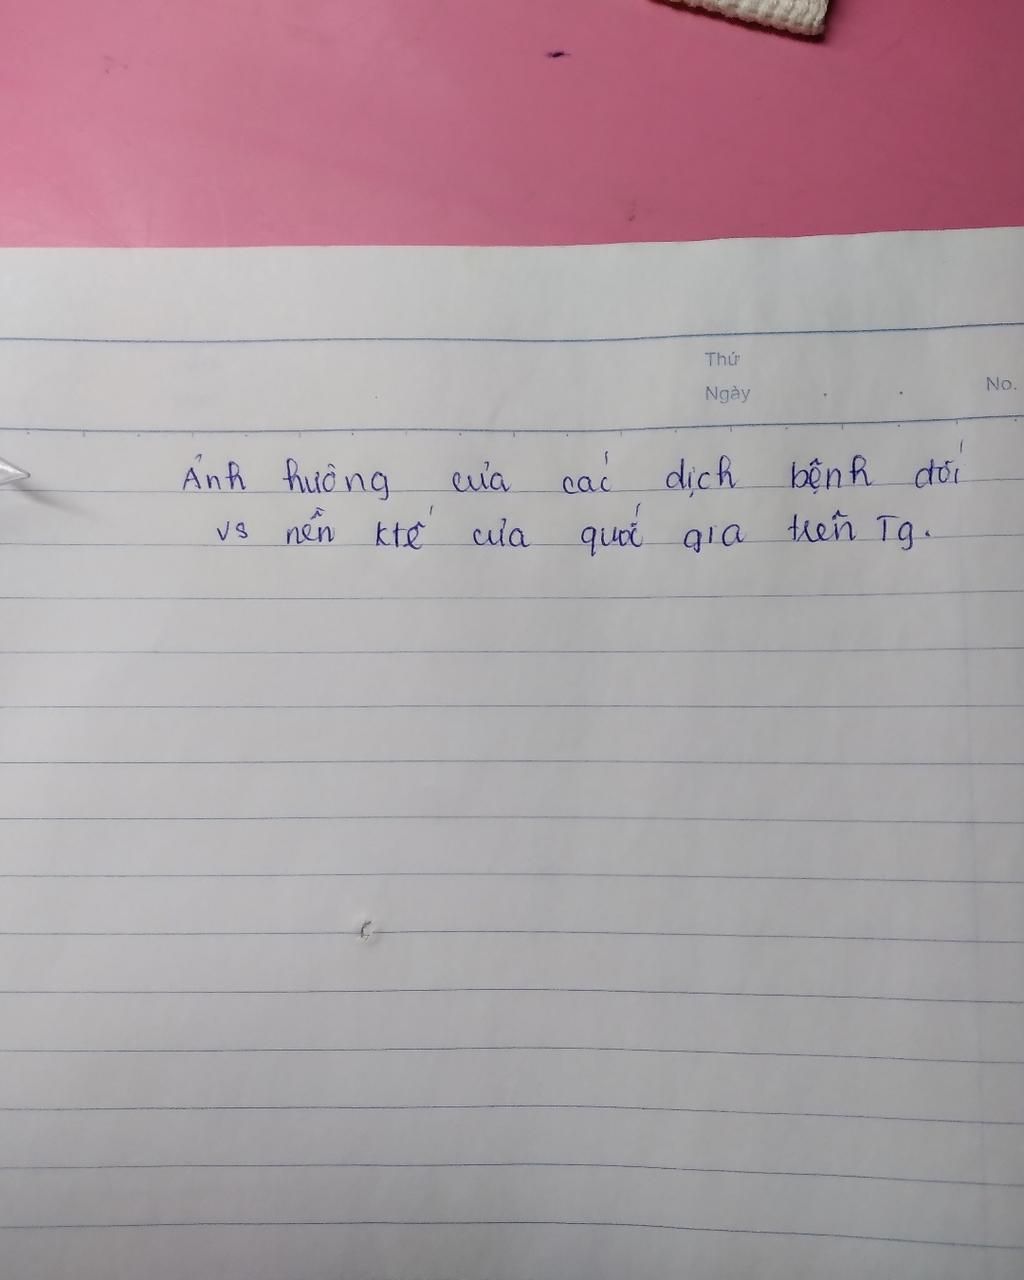 Thứ
Ngày
No.
Ảnh hưởng của các dịch bệnh đối
vs nền ktế của quốc gia trên Tg.